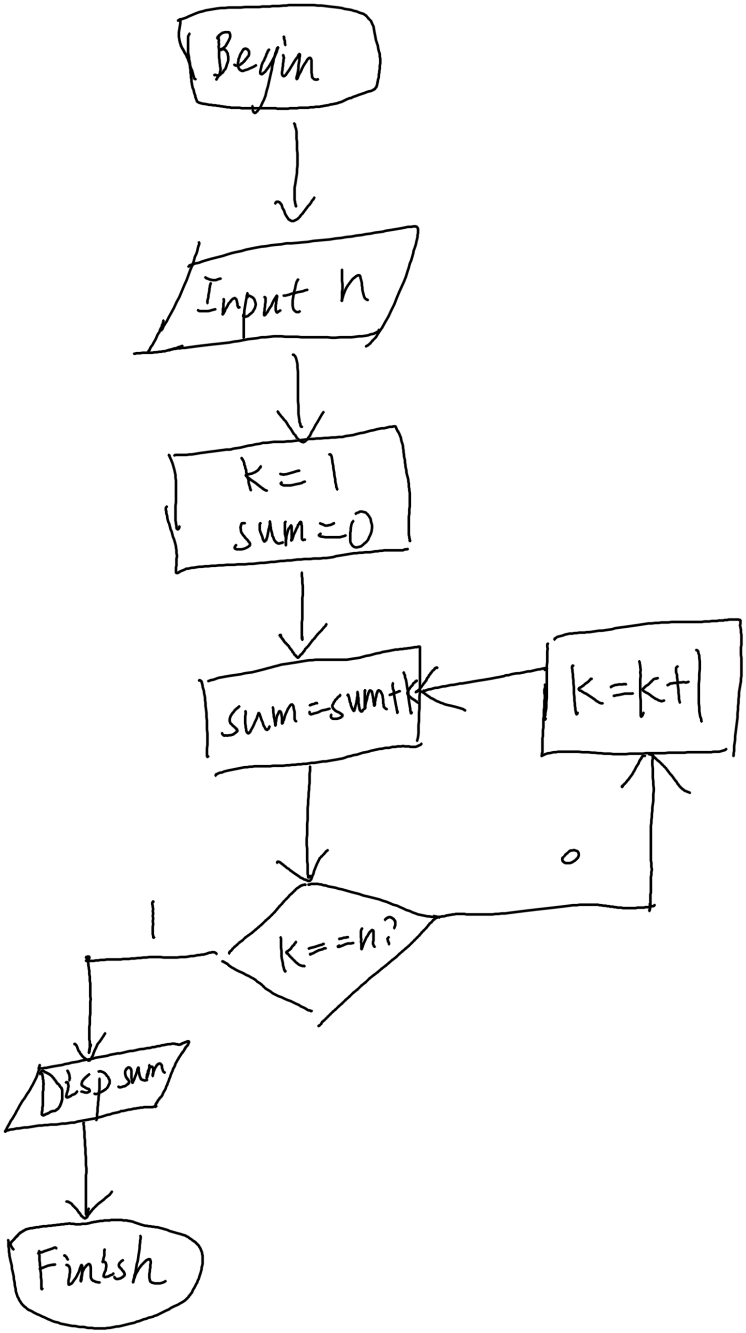 Begin
Input n
k = 1
sum=0
sum=sum+k
k=k+1
0
k==n?
1
Disp sum
Finish